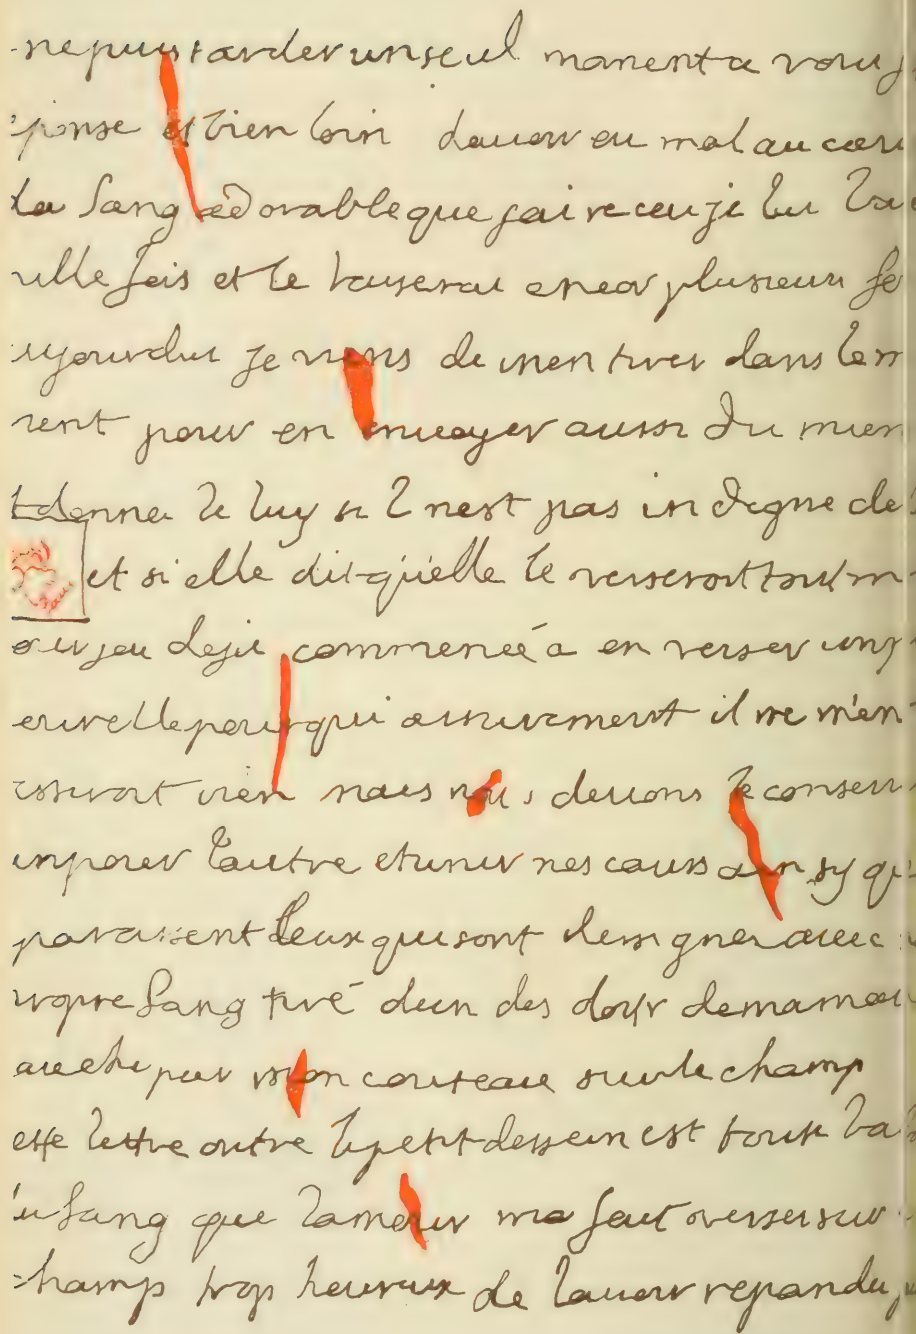 ne puis tarder un seul moment a vous
ponse et bien loin davoir eu mal au cœu
du Sang adorable que jai receu je lui
mille fois et le baiserai encor plusieur fo
ujourdui je viens de men tirer dans le m
ment pour en envoyer aussi du mien
donner le luy si l nest pas in digne de
et si elle dit quelle le verseroit tout
jeu deja commencé a en verser un
qui assurement il ne men
couteroit rien mais nous devons le conserv
un pour lautre et unir nos cœurs ainsy qu
paroissent deux qui sont dessignes avec
propre Sang tiré dun des doix de ma main
gauche par mon couteau sur le champ
ette lettre outre le petit dessein est toute
du Sang que lamour ma fait verser sur
champ trop heureux de lavoir repandu